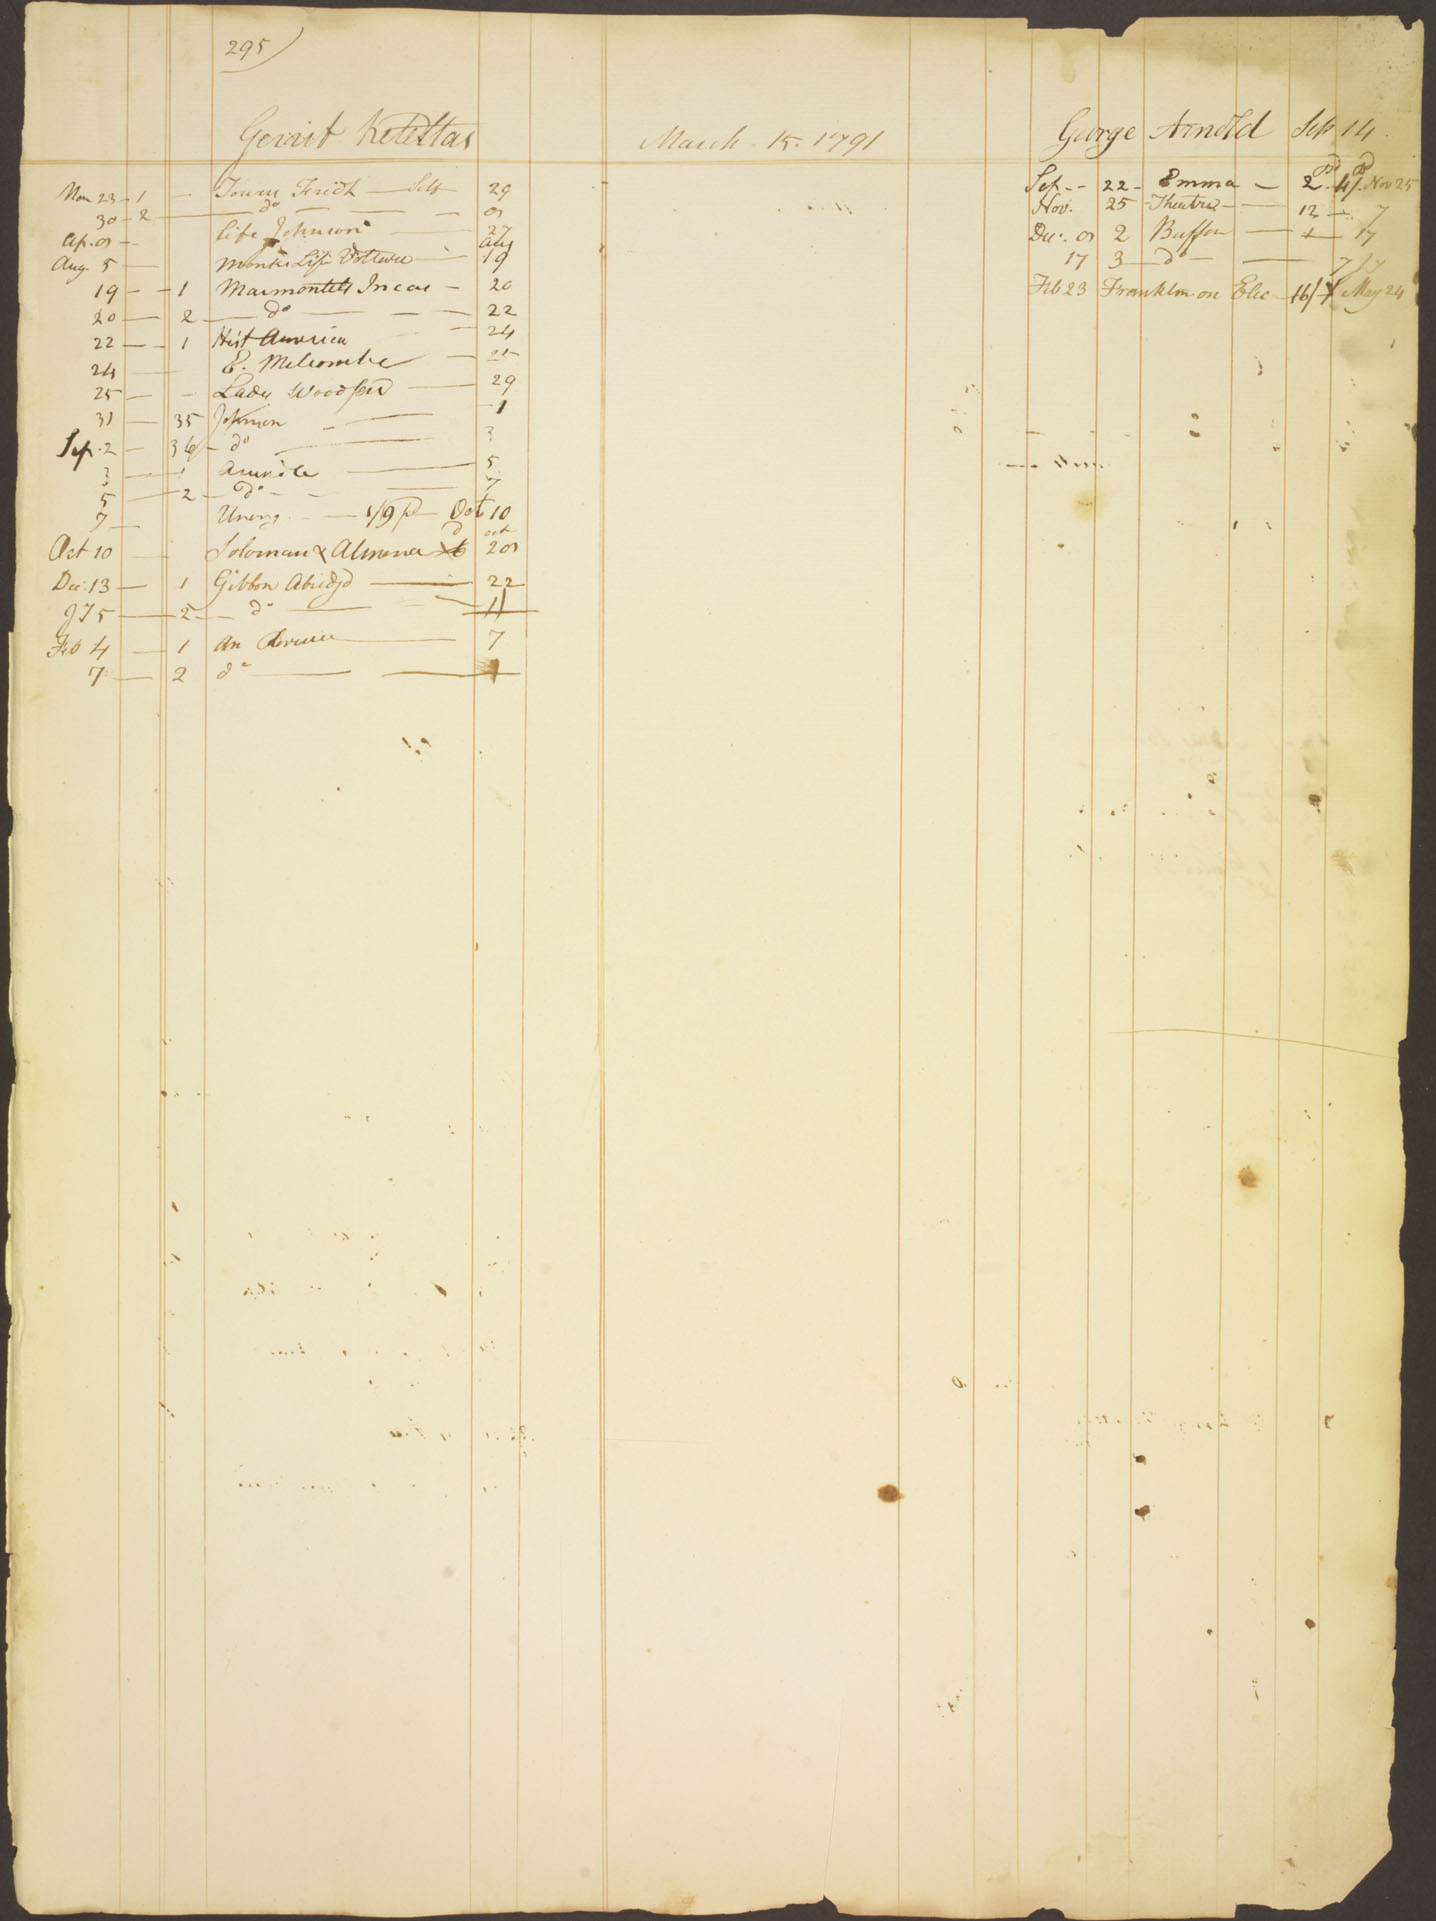 295
Gerrit Keteltas
March 15. 1791
Mar 23 - 1 — Towers Fredk — Self 29
30 - 2 — do — 01
Ap. 01 - Life Johnson — 27
Aug. 5 — Monks Life Voltaire — Aug 19
19 - - 1 Marmontels Incas - 20
20 — 2 — do — 22
22 - - 1 Hist America 24
24 — E. Melcombe — 25
25 — - Lady Woodford — 29
31 — 35 Johnson - — 1
Sep. 2 - 36 - do — 3
3 — 1 — 5
5 — 2 — do — 7
7 — 1/9 pd — Oct 10
Oct 10 — Soloman & Almena oct 201
Dec. 13 — 1 Gibbon Abridgd — 22
5 — 2 — do — 11
Feb 4 — 1 An — 7
7 — 2 do — 1
George Arnold Self 14
Sep - - 22 - Emma — 2 pd 4/. pd Nov 25
Nov. 25 - Theatre - — 12 — 7
Dec. 01 2 Buffon — 1 — 17
17 3 — do — 7
Feb 23 Franklin on Elec - 16/ May 24